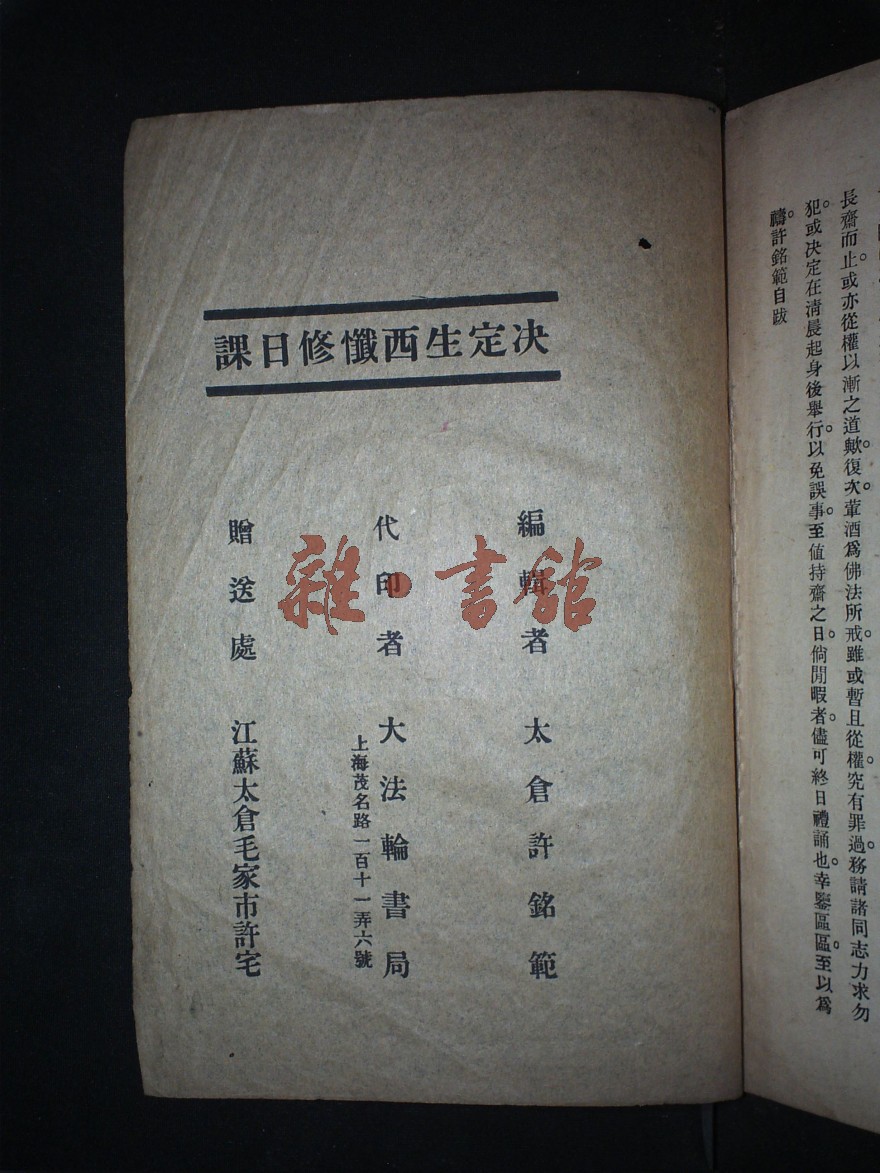 長齋而止。或亦從權以漸之道歟。復次。葷酒爲佛法所戒。雖或暫且從權。究有罪過。務請諸同志力求勿
犯。或決定在清晨起身後舉行。以免誤事。至值持齋之日。倘閒暇者。儘可終日禮誦也。幸鑒區區。至以爲
禱。許銘範自跋
決定生西懺修日課
編輯者 太倉許銘範
代印者 大法輪書局
上海茂名路一百十一弄六號
贈送處 江蘇太倉毛家市許宅
雜·書館